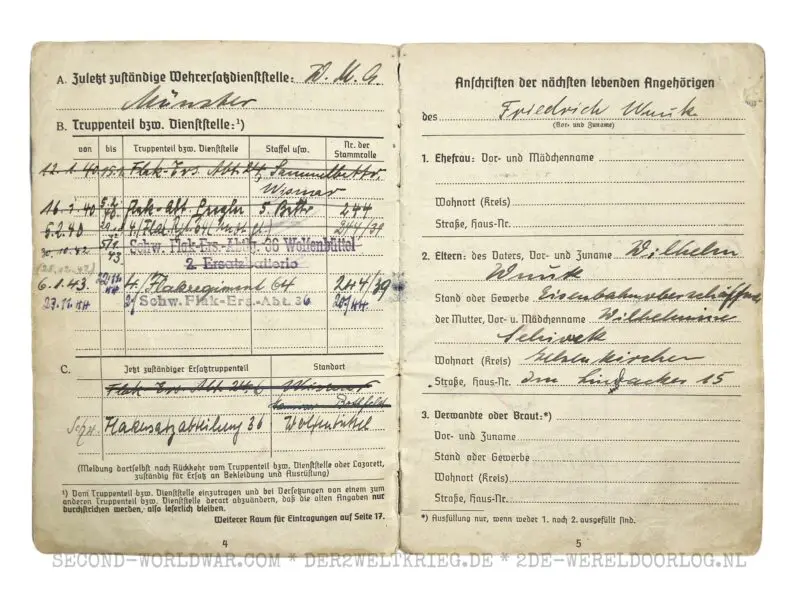 A. Zuletzt zuständige Wehrersatzdienststelle: W. M. A.
Münster
B. Truppenteil bzw. Dienststelle:¹)
von bis Truppenteil bzw. Dienststelle Staffel usw. Nr. der Stammrolle
12.1.40 Flak-Ers. Abt. Sammelbattr.
Wismar
16.1.40 Flak-Abt. 5. Battr. 244
5.2.40 244/39
30.10.42 Schw. Flak-Ers.-Abtlg. 36 Wolfenbüttel
2. Ersatzbatterie
6.1.43. 4./Flakregiment 64 244/39
23.11.44 2/Schw. Flak-Ers.-Abt. 36
C. Jetzt zuständiger Ersatztruppenteil Standort
Flak-Ers. Abt. Wismar
Schw. Flakersatzabteilung 36 Wolfenbüttel
(Meldung dortselbst nach Rückkehr vom Truppenteil bzw. Dienststelle oder Lazarett,
zuständig für Ersatz an Bekleidung und Ausrüstung)
¹) Vom Truppenteil bzw. Dienststelle einzutragen und bei Versetzungen von einem zum
anderen Truppenteil bzw. Dienststelle derart abzuändern, daß die alten Angaben nur
durchstrichen werden, also leserlich bleiben.
Weiterer Raum für Eintragungen auf Seite 17.
4
Anschriften der nächsten lebenden Angehörigen
des Friedrich Wnuk
(Vor- und Zuname)
1. Ehefrau: Vor- und Mädchenname
Wohnort (Kreis)
Straße, Haus-Nr.
2. Eltern: des Vaters, Vor- und Zuname Wilhelm
Wnuk
Stand oder Gewerbe
der Mutter, Vor- u. Mädchenname Wilhelmine
Wohnort (Kreis) Gelsenkirchen
Straße, Haus-Nr. Im Lindacker 15
3. Verwandte oder Braut:*)
Vor- und Zuname
Stand oder Gewerbe
Wohnort (Kreis)
Straße, Haus-Nr.
*) Ausfüllung nur, wenn weder 1. noch 2. ausgefüllt sind.
5
SECOND-WORLDWAR.COM * DER2WELTKRIEG.DE * 2DE-WERELDOORLOG.NL